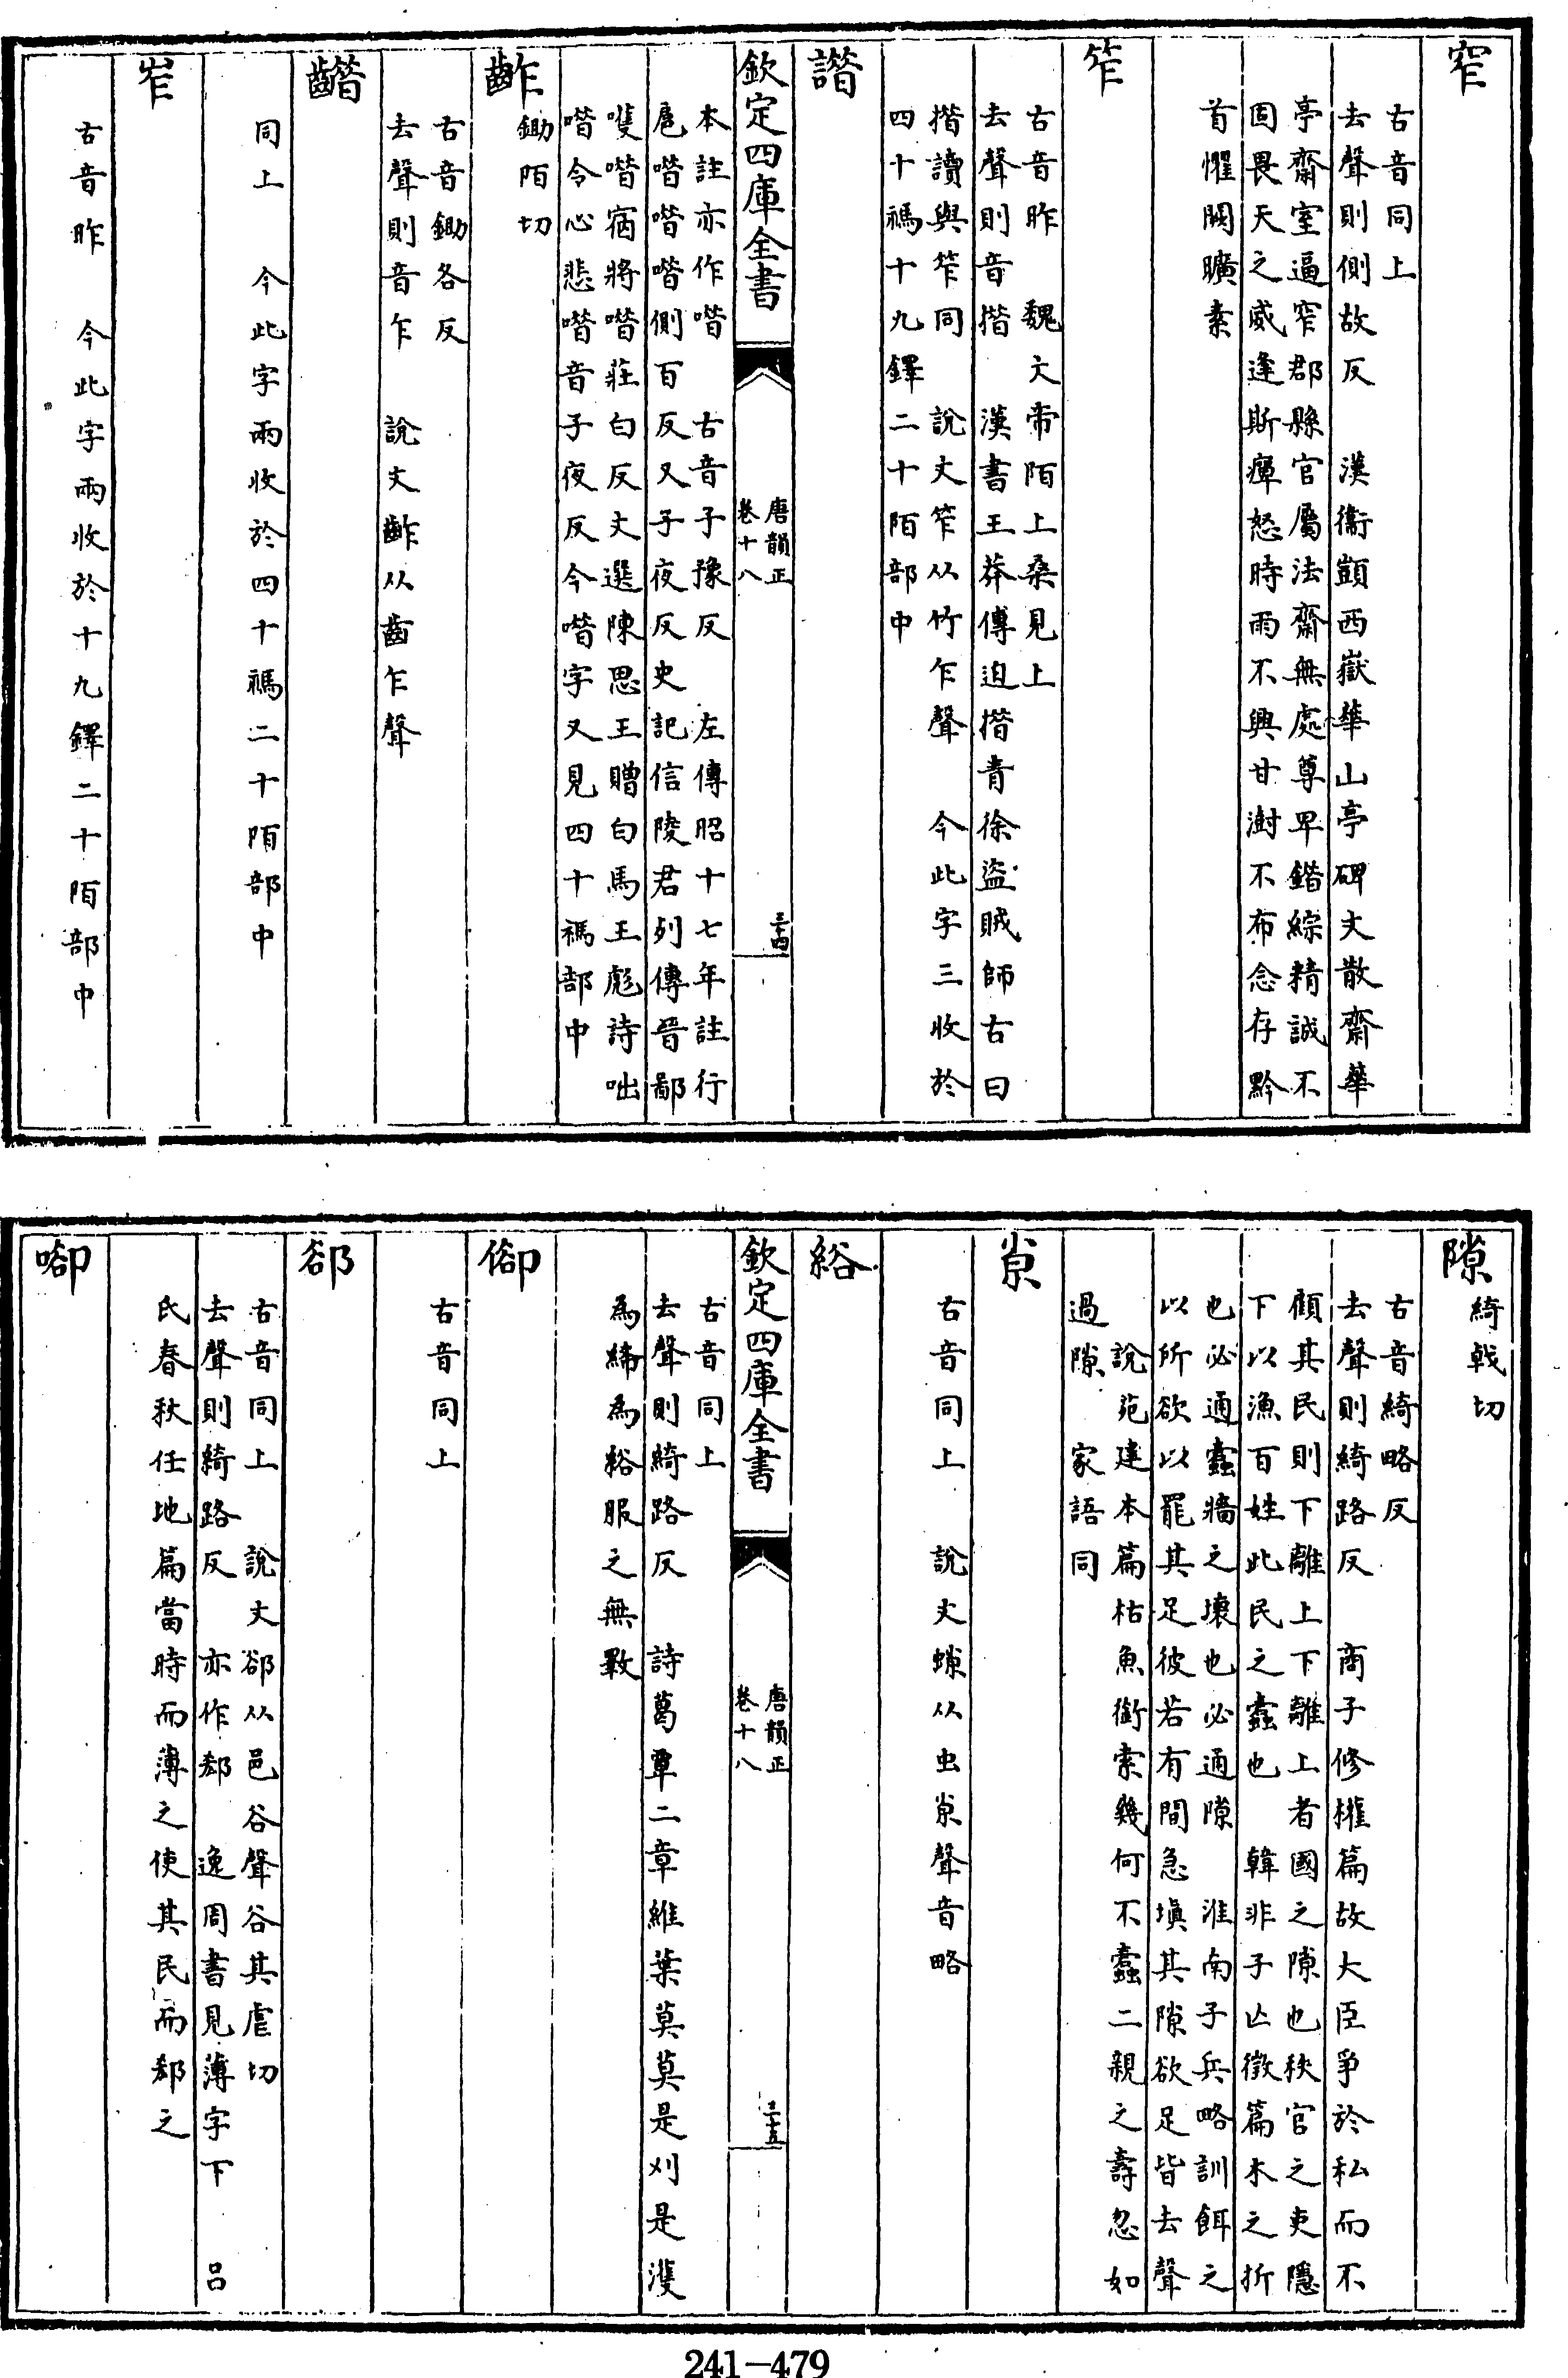 窄
古音同上
去聲則側故反　漢衞顗西嶽華山亭碑文散齋華
亭齋室逼窄郡縣官屬法齋無處尊卑錯綜精誠不
固畏天之威逢斯癉怒時雨不興甘澍不布念存黔
首懼闕曠素
笮
古音昨　魏文帝陌上桑見上
去聲則音措　漢書王莽傳迫措青徐盜賊師古曰
措讀與笮同　說文笮从竹乍聲　今此字三收於
四十禡十九鐸二十陌部中
譖
欽定四庫全書
唐韻正
卷十八
三十四
本註亦作唶　古音子豫反　左傳昭十七年註行
扈唶唶唶側百反又子夜反史記信陵君列傳晉鄙
嚄唶宿將唶莊白反文選陳思王贈白馬王彪詩咄
唶令心悲唶音子夜反今唶字又見四十禡部中
齚
鋤陌切
古音鋤各反
去聲則音乍　說文齚从齒乍聲
齰
同上　今此字兩收於四十禡二十陌部中
岝
古音昨　今此字兩收於十九鐸二十陌部中
隙
綺戟切
古音綺略反
去聲則綺路反　商子修權篇故大臣爭於私而不
顧其民則下離上下離上者國之隙也秩官之吏隱
下以漁百姓此民之蠹也　韓非子亡徵篇木之折
也必通蠹牆之壞也必通隙　淮南子兵略訓餌之
以所欲以罷其足彼若有間急填其隙欲足皆去聲
說苑建本篇枯魚銜索幾何不蠹二親之壽忽如
過隙　家語同
㡯
古音同上　說文螑从虫㡯聲音略
綌
欽定四庫全書
唐韻正
卷十八
三十五
古音同上
去聲則綺路反　詩葛覃二章維葉莫莫是刈是濩
為絺為綌服之無斁
㕁
古音同上
郤
古音同上　說文郤从邑谷聲谷其虐切
去聲則綺路反　亦作郄　逸周書見薄字下　呂
氏春秋任地篇當時而薄之使其民而郄之
啣
241—479